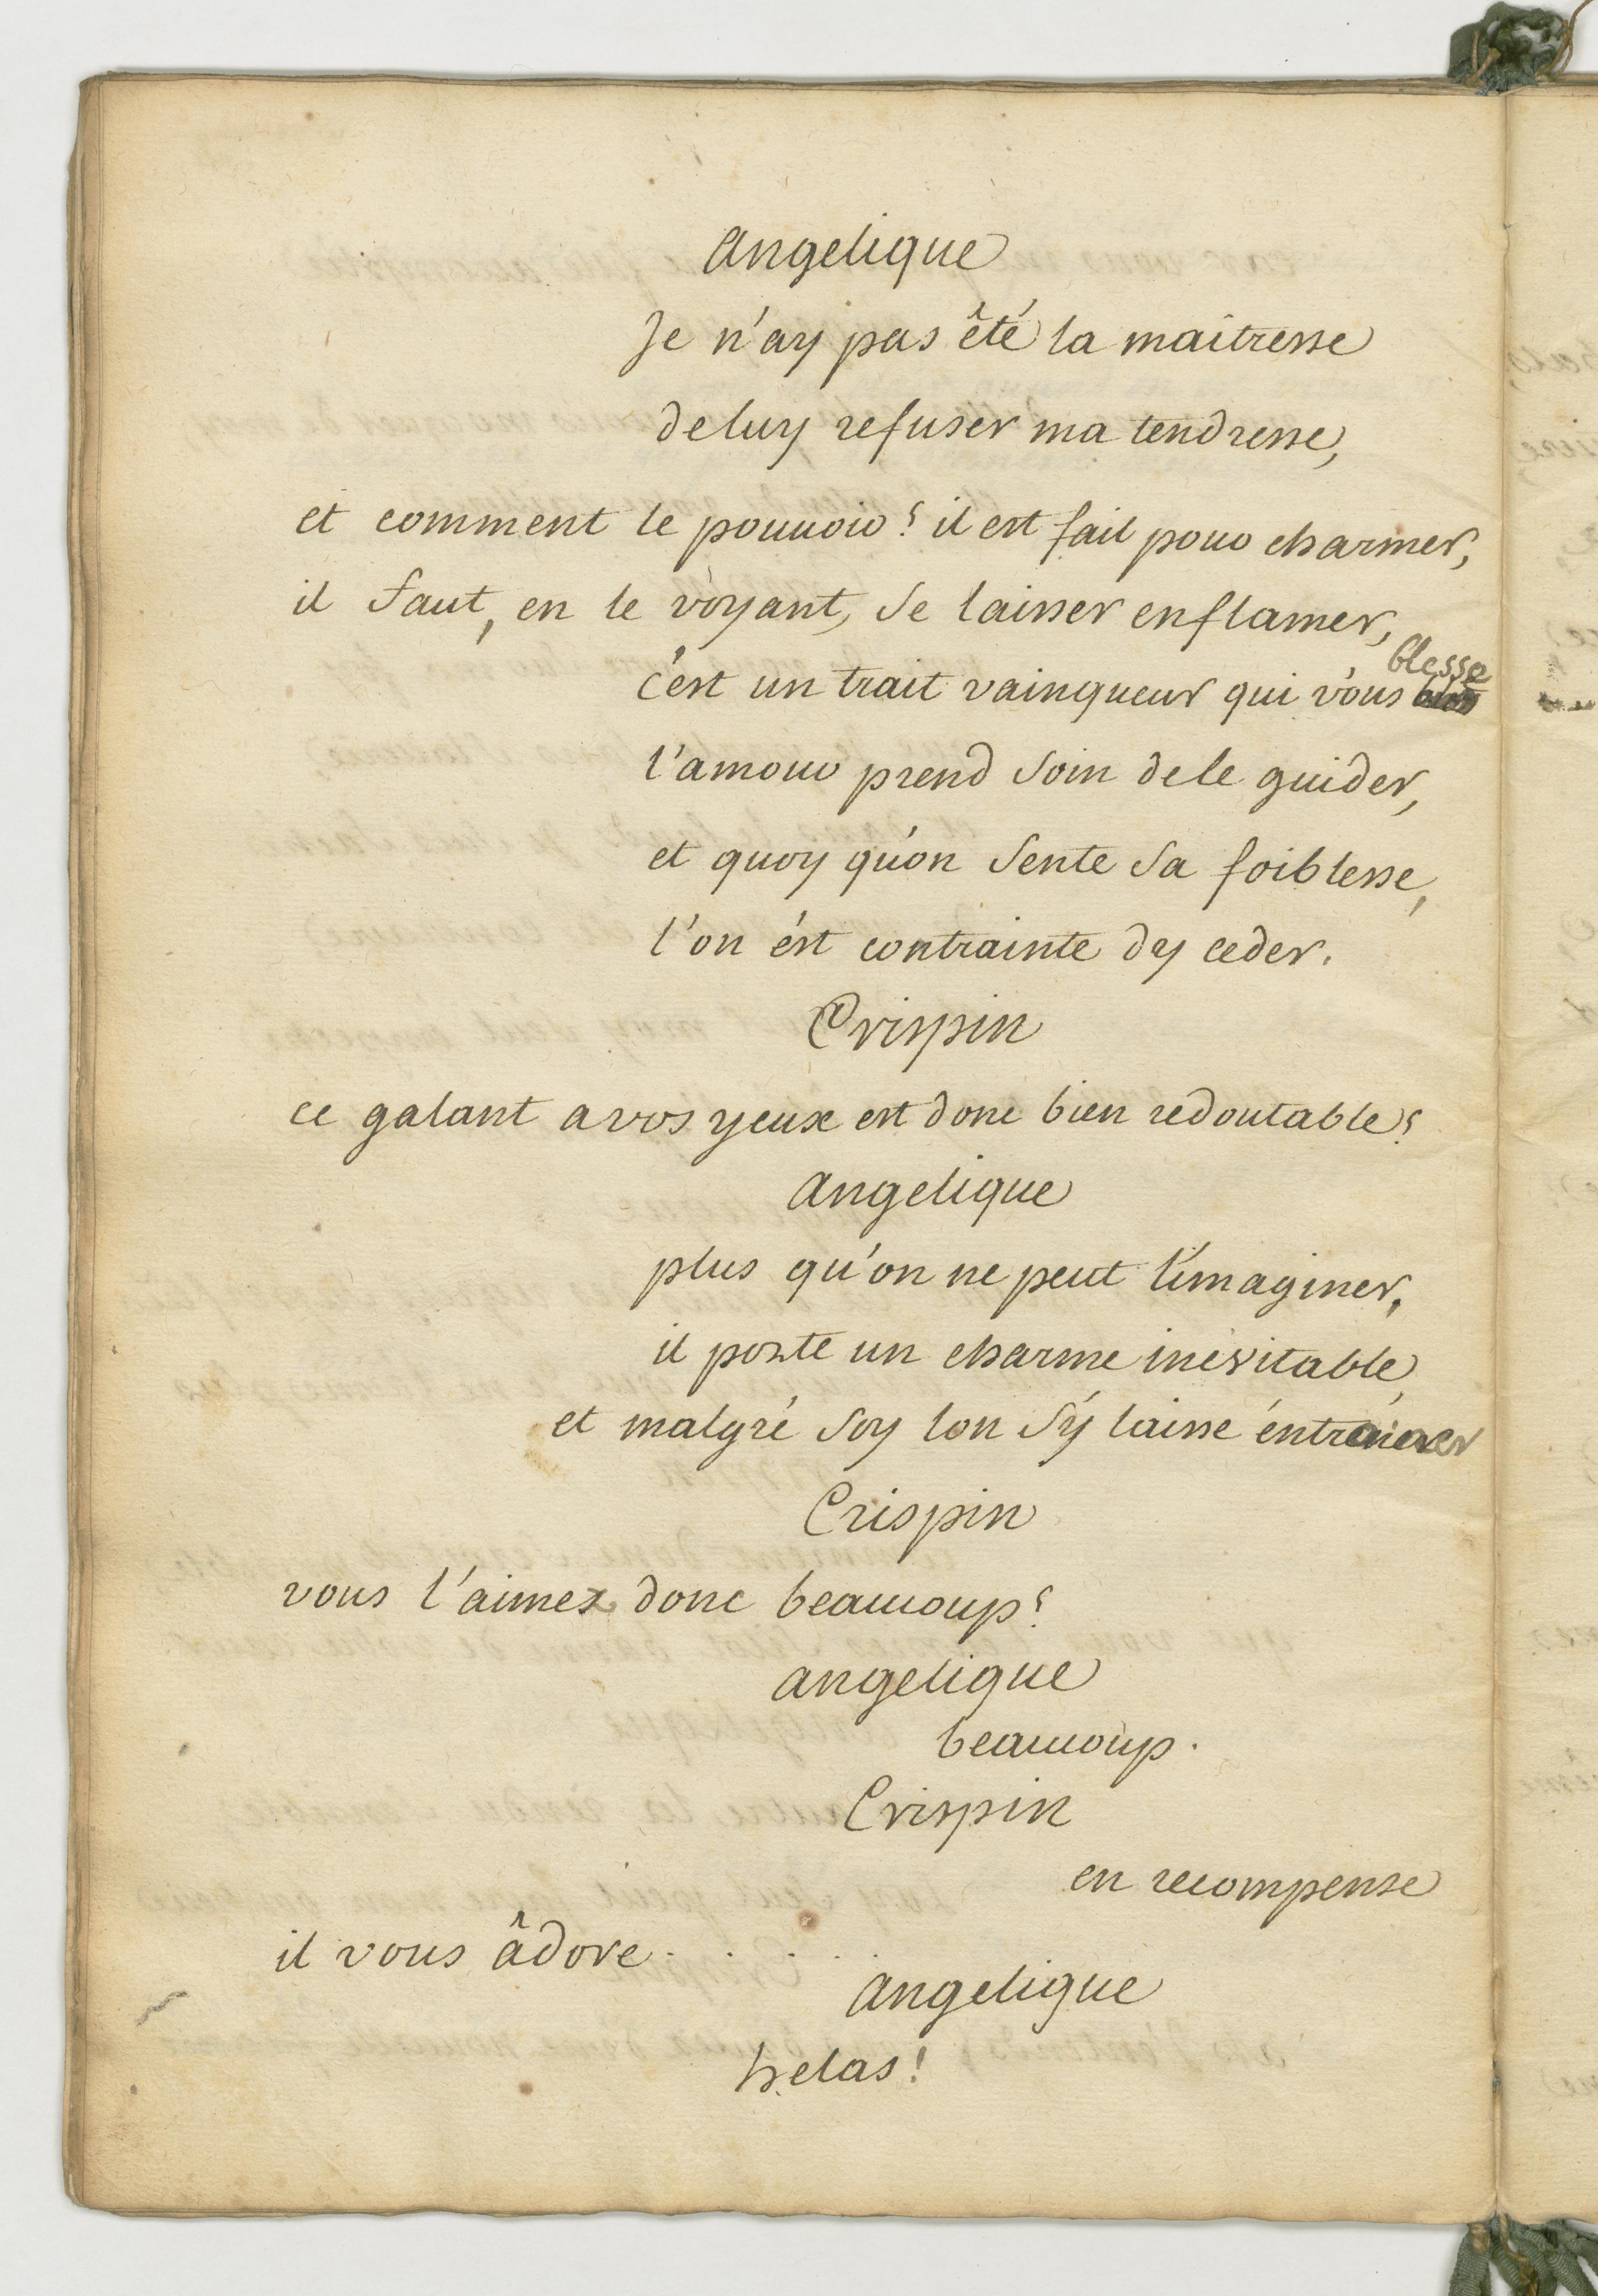 Angelique
Je n'ay pas êté la maitresse
de luy refuser ma tendresse,
et comment le pouuoir? il est fait pour charmer,
il faut, en le voyant, se laisser enflamer,
c'est un trait vainqueur qui vous blesse
l'amour prend soin de le guider,
et quoy qu'on sente sa foiblesse,
l'on ést contrainte dy ceder.
Crispin
ce galant a vos yeux est donc bien redoutable?
Angelique
plus qu'on ne peut l'imaginer,
il porte un charme inévitable,
et malgré soy lon s'y laisse éntrainer
Crispin
vous l'aimez donc beaucoup?
angelique
beaucoup.
Crispin
en recompense
il vous âdore . . . . .
angelique
helas!